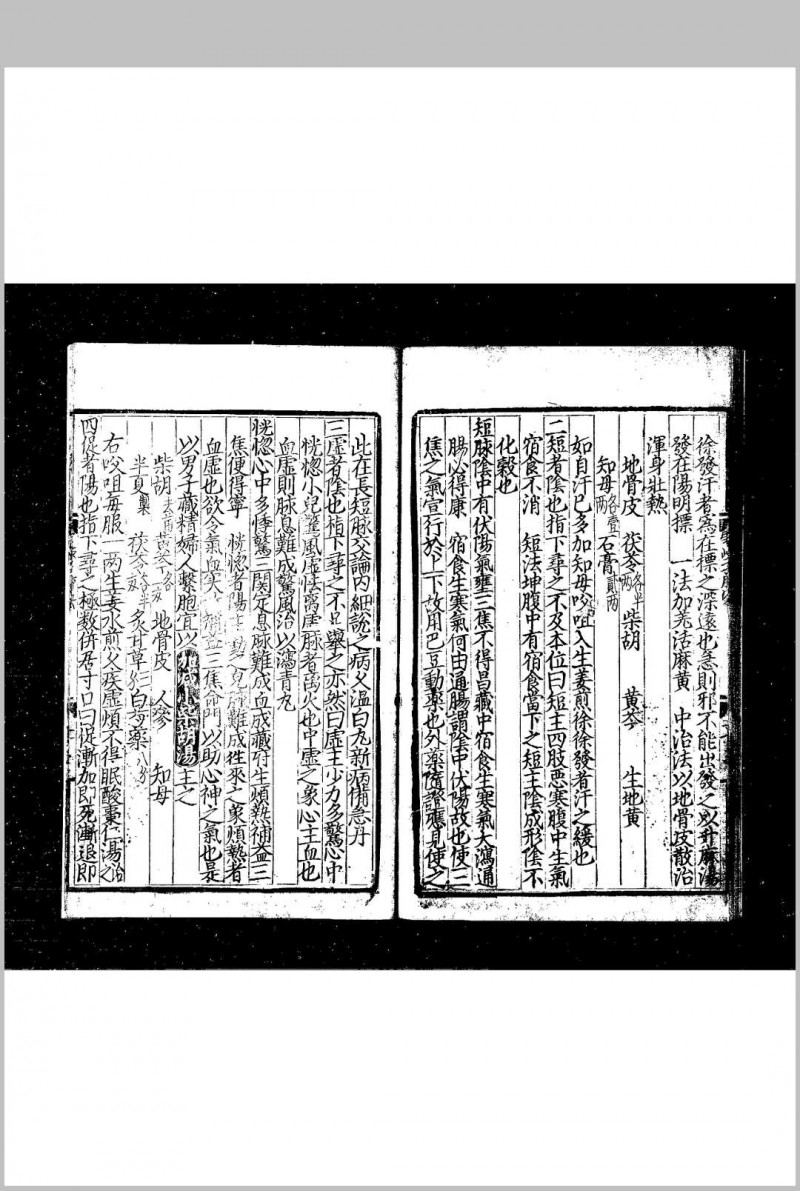 徐發汗者爲在標之深遠也急則邪不能出發之以升麻湯
發在陽明摽　一法加羌活麻黃　中治法以地骨皮散治
渾身壯熱
地骨皮　茯苓各半兩　柴胡　黃芩　生地黃
知母各壹兩　石膏貳兩
如自汗已多加知母㕮咀入生姜煎徐徐發者汗之緩也
二短者陰也指下尋之不及本位曰短主四肢惡寒腹中生氣
宿食不消　短法坤腹中有宿食當下之短主陰成形陰不
化穀也
短脉陰中有伏陽氣壅三焦不得昌藏中宿食生寒氣大瀉通
腸必得康　宿食生寒氣何由通腸謂陰中伏陽故也使三
焦之氣宣行於上下故用巴豆動藥也外藥隨證應見使之
此在長短脉交論内細說之病久溫白丸新病備急丹
三虛者陰也指下尋之不足舉之亦然曰虛主少力多驚心中
恍惚小兒驚風虛怯萬虛脉者离火也中虛之象心主血也
血虛則脉息難成驚風治以瀉青丸
恍惚心中多悸驚三關定息脉難成血成藏府生煩熱補益三
焦便得寧　恍惚者陽主動之見脉難成徃來之象煩熱者
血虛也欲令氣血實 補益三焦命門以助心神之氣也是
以男子藏精婦人繫胞宜以 加減小柴胡湯主之
柴胡 黃芩 地骨皮　人參　知母
半夏 茯苓 炙甘草 白芍藥
右㕮咀每服一兩生姜水煎久疾虛煩不得眠酸棗仁湯治之
四促者陽也指下尋之極數併居寸口曰促漸加即死漸退即